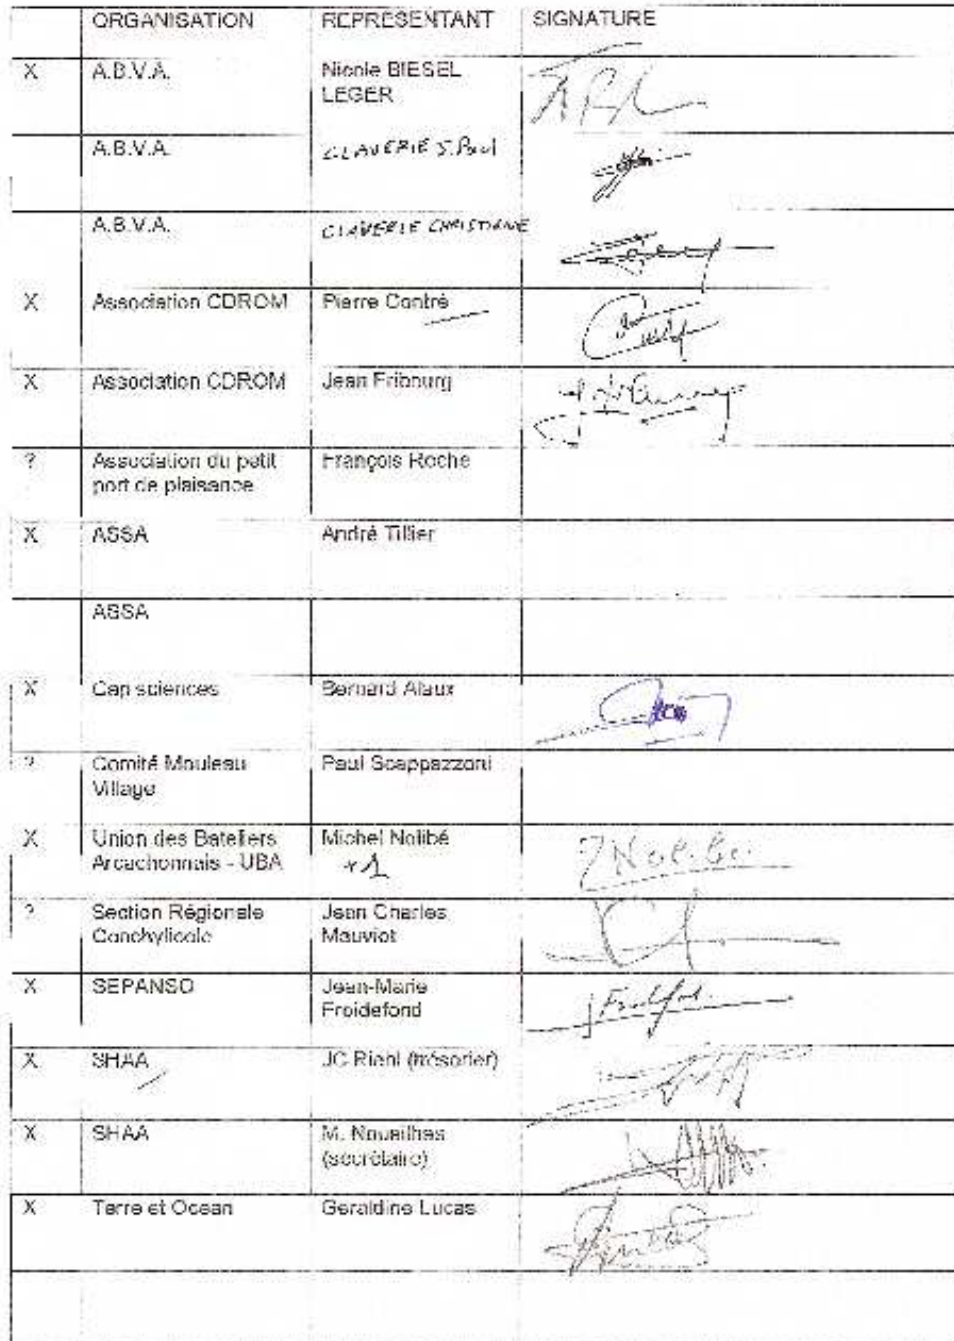 ORGANISATION REPRESENTANT SIGNATURE
X A.B.V.A. Nicole BIESEL
LEGER
A.B.V.A. CLAVERIE J. Paul
A.B.V.A. CLAVERIE CHRISTIANE
X Association CDROM Pierre Contré
X Association CDROM Jean Fribourg
? Association du petit François Roche
port de plaisance
X ASSA André Tillier
ASSA
X Cap sciences Bernard Alaux
? Comité Mouleau Paul Scappazzoni
Village
X Union des Bateliers Michel Nolibé
Arcachonnais - UBA +1
Nolibé
? Section Régionale Jean Charles
Conchylicole Mauviot
X SEPANSO Jean-Marie
Froidefond
X SHAA JC Riehl (trésorier)
X SHAA M. Nouailhas
(secrétaire)
X Terre et Ocean Geraldine Lucas